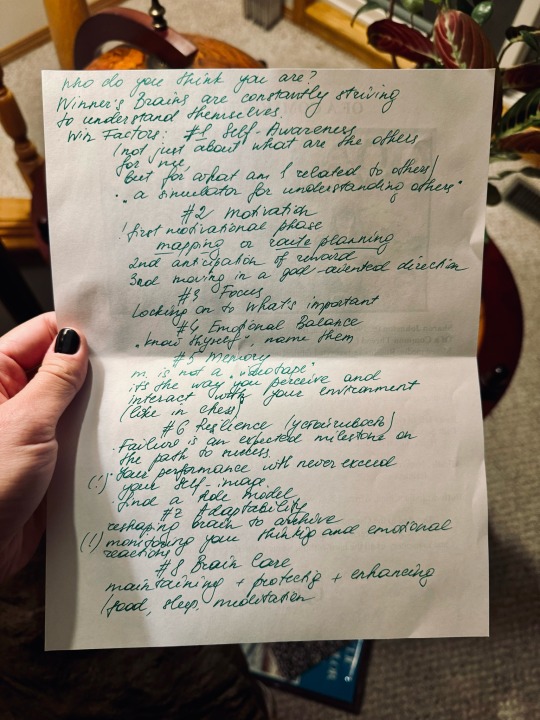 Who do you think you are?
Winner's Brains are constantly striving
to understand themselves.
Win Factors: #1 Self-Awareness
(not just about what are the others
for me,
but for what am I related to others)
"a simulator for understanding others"
#2 Motivation
! first motivational phase
mapping or route planning
2nd anticipation of reward
3nd moving in a goal-oriented direction
#3 Focus
Locking on to what's important
#4 Emotional Balance
"know thyself", name them
#5 Memory
m. is not a "videotape"
it's the way you perceive and
interact with your environment
(like in chess)
#6 Resilience (устойчивость)
Failure is an expected milestone on
the path to success.
(!) Your performance with never exceed
your self-image.
find a Role Model
#7 Adaptability
reshaping brain to archive
(!) monitoring you thinkig and emotional
reactions
#8 Brain Care
maintaining + protectig + enhancing
(food, sleep, meditation